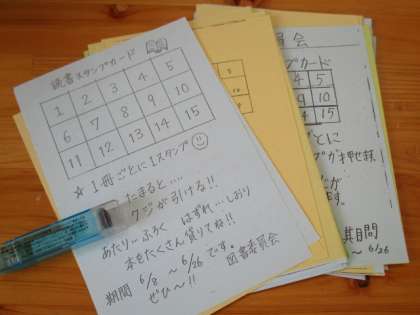 読書スタンプカード
1 2 3 4 5
6 7 8 9 10
11 12 13 14 15
☆ 1冊ごとに1スタンプ
たまると….
クジが引ける!!
あたり…ふろく はずれ…しおり
本もたくさん貸りてね!!
期間 6/8 〜 6/26 です。
ぜひ〜!! 図書委員会
員会
カード
4 5
9 10
15
ごとに
が
ます。
期間
〜 6/26